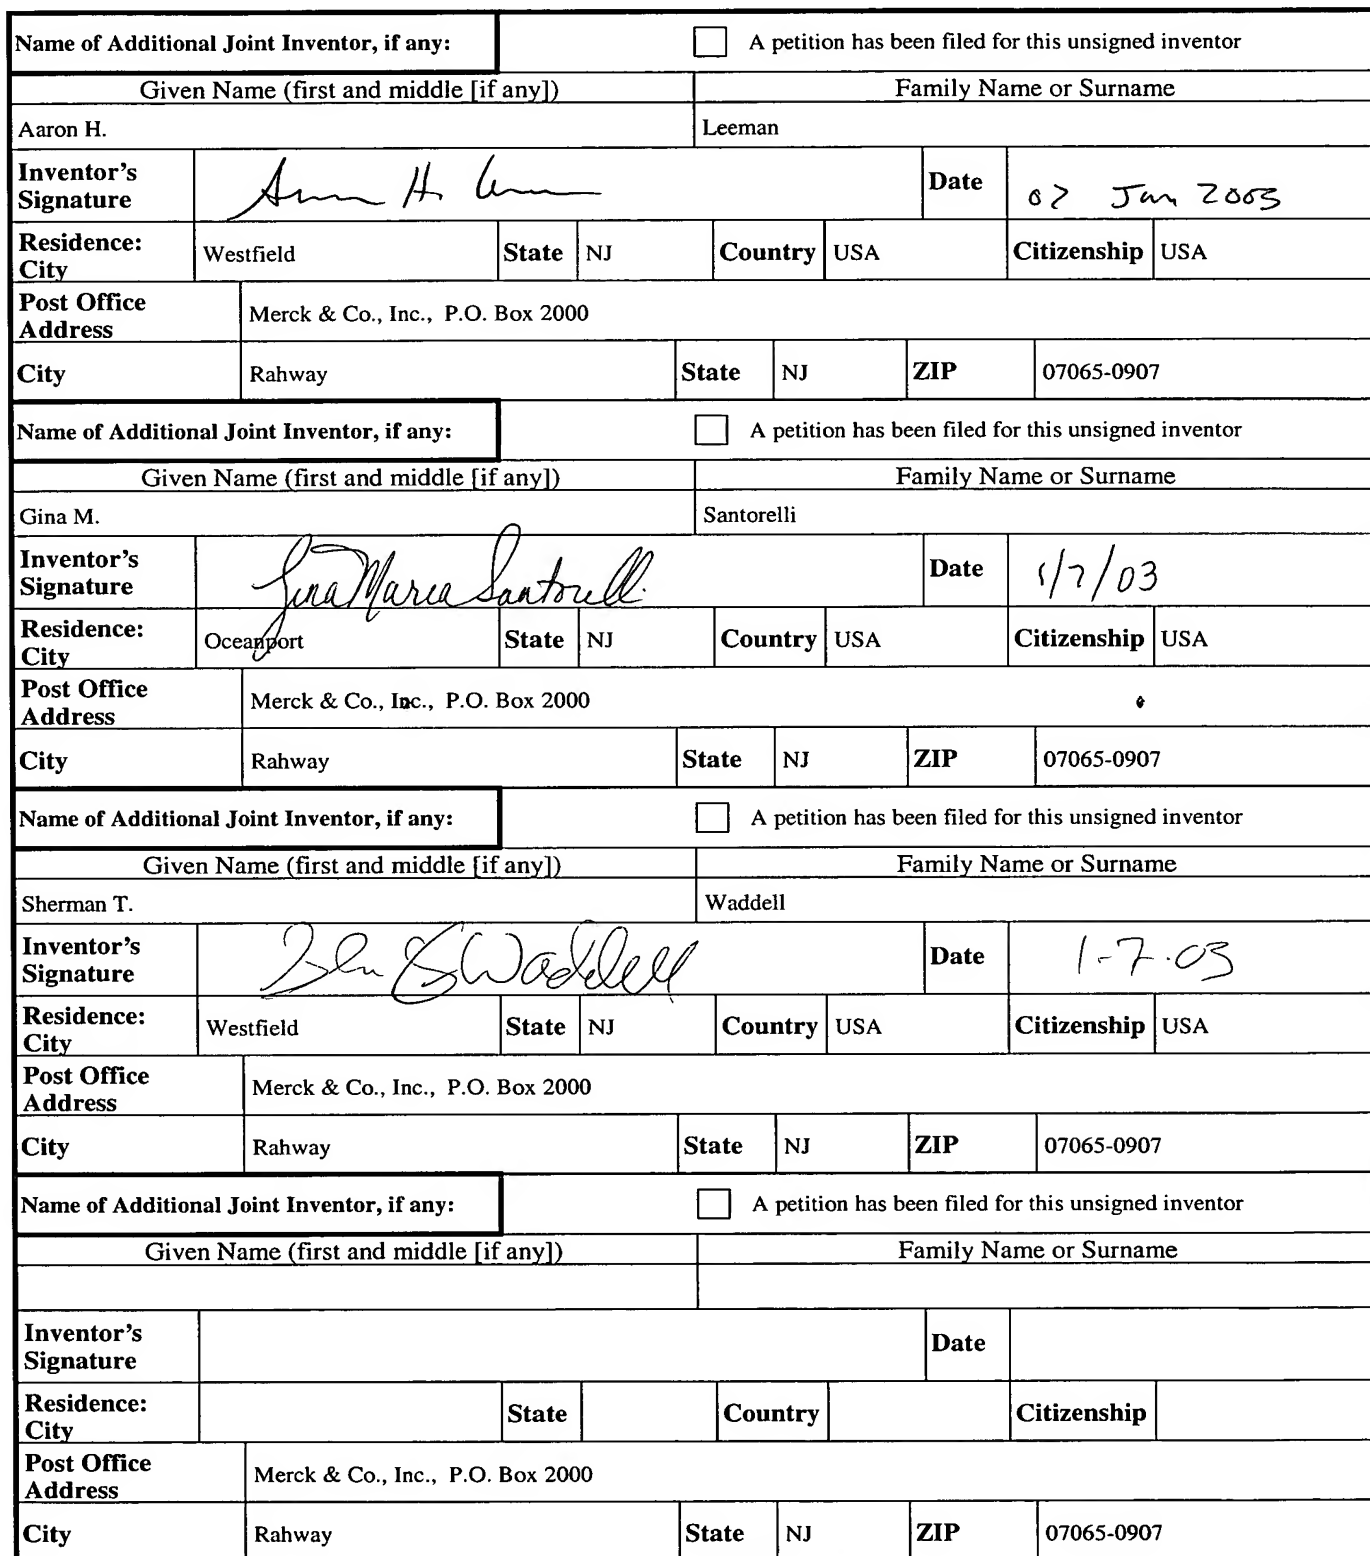 Name of Additional Joint Inventor, if any: A petition has been filed for this unsigned inventor
Given Name (first and middle [if any]) Family Name or Surname
Aaron H. Leeman
Inventor's Signature Date 07 Jan 2003
Residence: City Westfield State NJ Country USA Citizenship USA
Post Office Address Merck & Co., Inc., P.O. Box 2000
City Rahway State NJ ZIP 07065-0907
Name of Additional Joint Inventor, if any: A petition has been filed for this unsigned inventor
Given Name (first and middle [if any]) Family Name or Surname
Gina M. Santorelli
Inventor's Signature Gina Maria Santorelli Date 1/7/03
Residence: City Oceanport State NJ Country USA Citizenship USA
Post Office Address Merck & Co., Inc., P.O. Box 2000
City Rahway State NJ ZIP 07065-0907
Name of Additional Joint Inventor, if any: A petition has been filed for this unsigned inventor
Given Name (first and middle [if any]) Family Name or Surname
Sherman T. Waddell
Inventor's Signature Waddell Date 1-7-03
Residence: City Westfield State NJ Country USA Citizenship USA
Post Office Address Merck & Co., Inc., P.O. Box 2000
City Rahway State NJ ZIP 07065-0907
Name of Additional Joint Inventor, if any: A petition has been filed for this unsigned inventor
Given Name (first and middle [if any]) Family Name or Surname
Inventor's Signature Date
Residence: City State Country Citizenship
Post Office Address Merck & Co., Inc., P.O. Box 2000
City Rahway State NJ ZIP 07065-0907